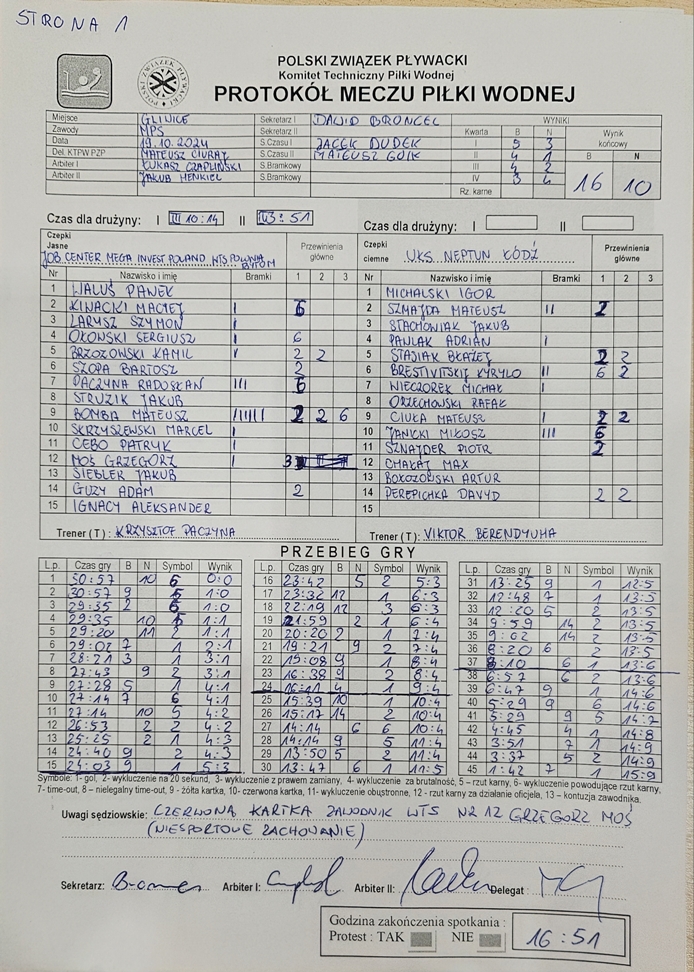 STRONA 1
POLSKI ZWIĄZEK PŁYWACKI
Komitet Techniczny Piłki Wodnej
PROTOKÓŁ MECZU PIŁKI WODNEJ
Miejsce GLIWICE Sekretarz I DAWID BRONCEL WYNIKI
Zawody MPS Sekretarz II Kwarta B N Wynik końcowy
Data 19.10.2024 S.Czasu I JACEK DUDEK I 5 3
Del. KTPW PZP MATEUSZ S.Czasu II MATEUSZ II 4 1 B N
Arbiter I ŁUKASZ CZAPLIŃSKI S.Bramkowy III 4 2 16 10
Arbiter II JAKUB HENKIEL S.Bramkowy IV 3 4
Rz. karne
Czas dla drużyny: I III 10:14 II 3:51
Czas dla drużyny: I II
Czepki Jasne JOB CENTER MEGA INVEST POLAND WTS POLONIA BYTOM Przewinienia główne
Czepki ciemne UKS NEPTUN ŁÓDŹ Przewinienia główne
Nr Nazwisko i imię Bramki 1 2 3 Nr Nazwisko i imię Bramki 1 2 3
1 WALUŚ PAWEŁ 1 MICHALSKI IGOR
2 KINACKI MACIEJ I 6 2 SZMAJDA MATEUSZ II 2
3 LARYSZ SZYMON I 3 STACHOWIAK JAKUB
4 OKOWSKI SERGIUSZ I 6 4 PAWLAK ADRIAN I
5 BRZOZOWSKI KAMIL 2 2 5 STASIAK BŁAŻEJ 2 2
6 SZOPA BARTOSZ 2 6 BRESTIVITSKIE KYRYLO II 6 2
7 PACZYNA RADOSŁAW III 6 7 WIECZOREK MICHAŁ I
8 STRUZIK JAKUB 8 ORZECHOWSKI RAFAŁ
9 BOMBA MATEUSZ 2 2 6 9 CIUŁA MATEUSZ I 2 2
10 SKRZYSZEWSKI MARCEL I 10 JANICKI MIŁOSZ III 6
11 CEBO PATRYK I 11 SZNAJDER PIOTR 2
12 MOŚ GRZEGORZ I 3 12 MAX
13 SIEBLER JAKUB 13 ARTUR
14 GUZY ADAM 2 14 PEREPICHKA DAVYD 2 2
15 IGNACY ALEKSANDER 15
Trener (T) : KRZYSZTOF PACZYNA Trener (T) : VIKTOR BERENDYUHA
PRZEBIEG GRY
L.p. Czas gry B N Symbol Wynik L.p. Czas gry B N Symbol Wynik L.p. Czas gry B N Symbol Wynik
1 30:57 10 6 0:0 16 23:42 5 2 5:3 31 13:25 9 1 12:5
2 30:57 9 5 1:0 17 23:32 12 1 6:3 32 12:48 7 1 13:5
3 29:35 2 6 1:0 18 22:19 12 3 6:3 33 12:20 5 2 13:5
4 29:35 10 5 1:1 19 21:59 2 1 6:4 34 9:59 14 2 13:5
5 29:20 11 2 1:1 20 20:20 2 1 7:4 35 9:02 14 2 13:5
6 29:02 7 1 2:1 21 19:21 9 2 7:4 36 8:20 6 2 13:5
7 28:21 3 1 3:1 22 9 1 8:4 37 8:10 6 1 13:6
8 27:43 9 2 3:1 23 16:38 9 2 8:4 38 6:57 6 2 13:6
9 27:28 5 1 4:1 24 16:11 4 1 9:4 39 6:47 9 1 14:6
10 27:14 7 6 4:1 25 15:39 10 1 10:4 40 5:29 9 6 14:6
11 27:14 10 5 4:2 26 15:17 14 2 10:4 41 5:29 9 5 14:7
12 26:53 2 2 4:2 27 14:14 6 6 10:4 42 4:45 4 1 14:8
13 25:25 2 1 4:3 28 14:14 9 5 11:4 43 3:51 7 1 14:9
14 24:40 9 2 4:3 29 13:50 5 2 11:4 44 3:37 5 2 14:9
15 24:03 9 1 5:3 30 13:47 6 1 11:5 45 1:42 7 1 15:9
Symbole: 1- gol, 2- wykluczenie na 20 sekund, 3- wykluczenie z prawem zamiany, 4- wykluczenie za brutalność, 5 – rzut karny, 6- wykluczenie powodujące rzut karny,
7- time-out, 8 – nielegalny time-out, 9 - żółta kartka, 10- czerwona kartka, 11- wykluczenie obustronne, 12 - rzut karny za działanie oficjela, 13 – kontuzja zawodnika.
Uwagi sędziowskie: CZERWONA KARTKA ZAWODNIK WTS NR 12 GRZEGORZ MOŚ
(NIESPORTOWE ZACHOWANIE)
Sekretarz: Arbiter I: Arbiter II: Delegat :
Godzina zakończenia spotkania :
Protest : TAK NIE 16:51